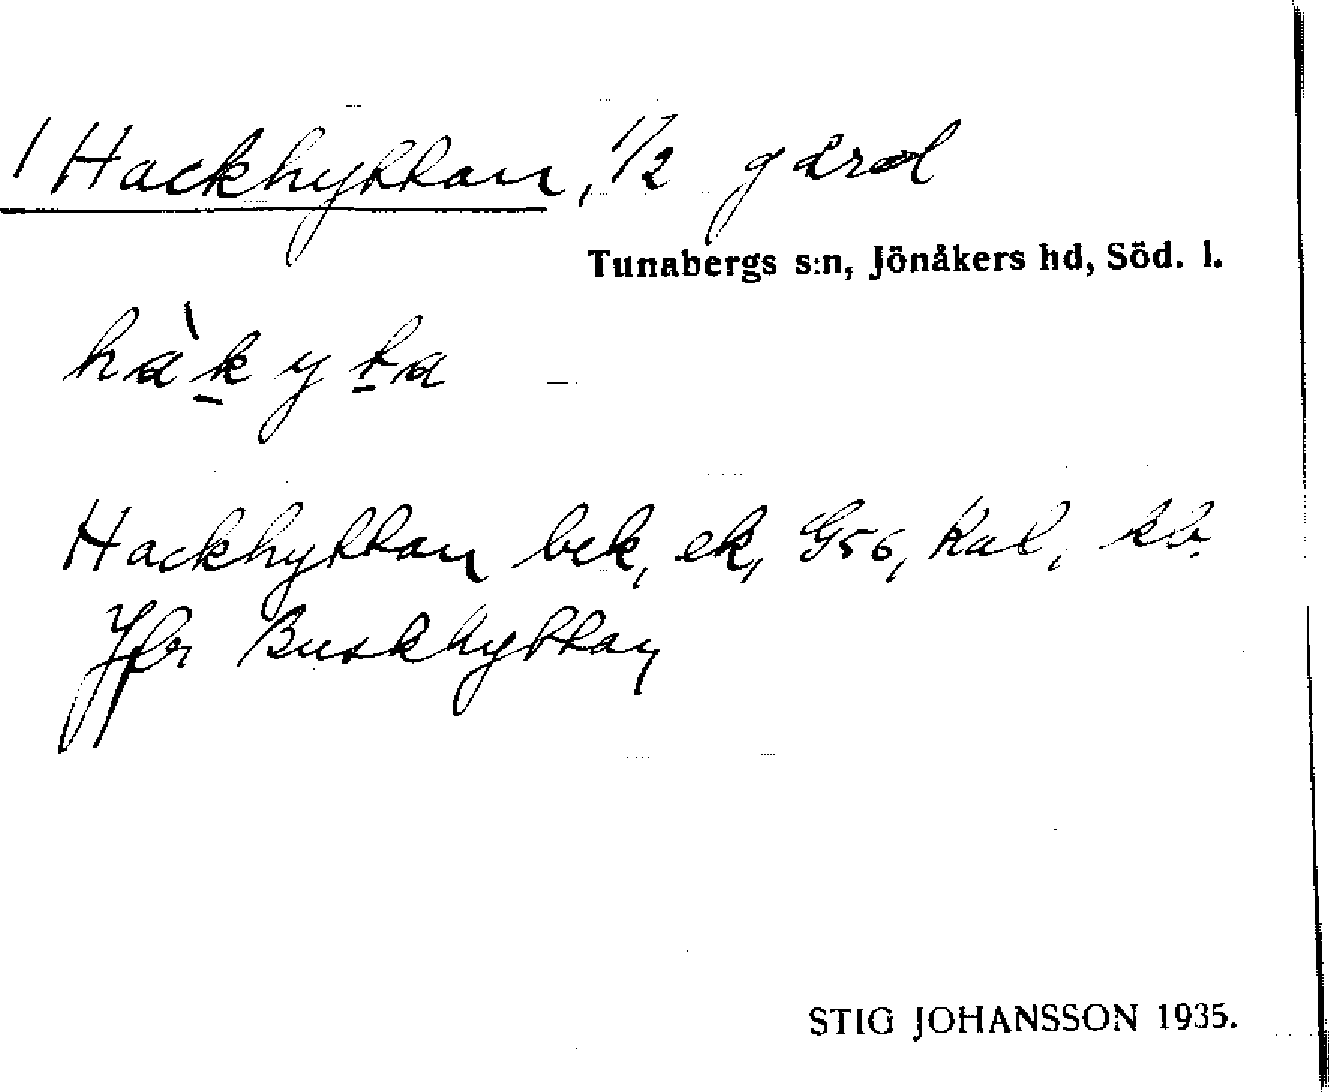 1 Hackhyttan, 1/2 gård
Tunabergs s:n, Jönåkers hd, Söd. l.
hàk̲yt̲a
Hackhyttan bek, ek, G56, Kal, kb.
Jfr Buskhyttan
STIG JOHANSSON 1935.